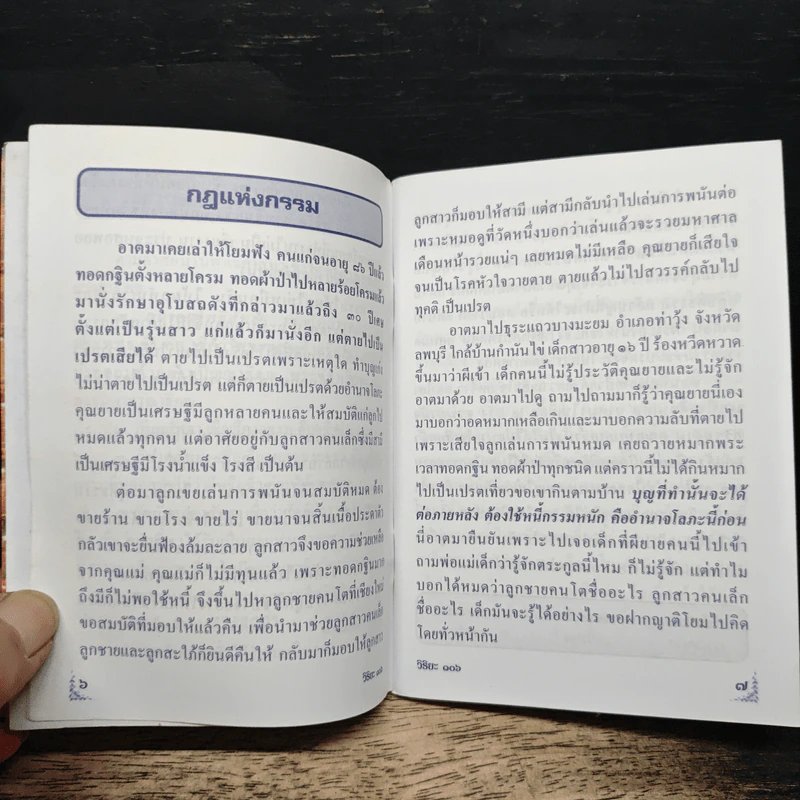 กฎแห่งกรรม
อาตมาเคยเล่าให้โยมฟัง คนแก่จนอายุ ๘๖ ปีแล้ว
ทอดกฐินตั้งหลายโครม ทอดผ้าป่าไปหลายร้อยโครมแล้ว
มานั่งรักษาอุโบสถดังที่กล่าวมาแล้วถึง ๓๐ ปีเศษ
ตั้งแต่เป็นรุ่นสาว แก่แล้วก็มานั่งอีก แต่ตายไปเป็น
เปรตเสียได้ ตายไปเป็นเปรตเพราะเหตุใด ทำบุญเก่ง
ไม่น่าตายไปเป็นเปรต แต่ก็ตายเป็นเปรตด้วยอำนาจโลภะ
คุณยายเป็นเศรษฐีมีลูกหลายคนและให้สมบัติแก่ลูกไป
หมดแล้วทุกคน แต่อาศัยอยู่กับลูกสาวคนเล็กซึ่งมีสามี
เป็นเศรษฐีมีโรงน้ำแข็ง โรงสี เป็นต้น
ต่อมาลูกเขยเล่นการพนันจนสมบัติหมด ต้อง
ขายร้าน ขายโรง ขายไร่ ขายนาจนสิ้นเนื้อประดาตัว
กลัวเขาจะยื่นฟ้องล้มละลาย ลูกสาวจึงขอความช่วยเหลือ
จากคุณแม่ คุณแม่ก็ไม่มีทุนแล้ว เพราะทอดกฐินมาก
ถึงมีก็ไม่พอใช้หนี้ จึงขึ้นไปหาลูกชายคนโตที่เชียงใหม่
ขอสมบัติที่มอบให้แล้วคืน เพื่อนำมาช่วยลูกสาวคนเล็ก
ลูกชายและลูกสะใภ้ก็ยินดีคืนให้ กลับมาก็มอบให้ลูกสาว
๖
วิริยะ ๑๐๖
ลูกสาวก็มอบให้สามี แต่สามีกลับนำไปเล่นการพนันต่อ
เพราะหมอดูที่วัดหนึ่งบอกว่าเล่นแล้วจะรวยมหาศาล
เดือนหน้ารวยแน่ๆ เลยหมดไม่มีเหลือ คุณยายก็เสียใจ
จนเป็นโรคหัวใจวายตาย ตายแล้วไม่ไปสวรรค์กลับไป
ทุคติ เป็นเปรต
อาตมาไปธุระแถวบางมะยม อำเภอท่าวุ้ง จังหวัด
ลพบุรี ใกล้บ้านกำนันไข่ เด็กสาวอายุ ๑๖ ปี ร้องหวีดหวาด
ขึ้นมาว่าผีเข้า เด็กคนนี้ไม่รู้ประวัติคุณยายและไม่รู้จัก
อาตมาด้วย อาตมาไปดู ถามไปถามมาก็รู้ว่าคุณยายนี้เอง
มาบอกว่าอดหมากเหลือเกินและมาบอกความลับที่ตายไป
เพราะเสียใจลูกเล่นการพนันหมด เคยถวายหมากพระ
เวลาทอดกฐิน ทอดผ้าป่าทุกชนิด แต่คราวนี้ไม่ได้กินหมาก
ไปเป็นเปรตเที่ยวขอเขากินตามบ้าน บุญที่ทำนั้นจะได้
ต่อภายหลัง ต้องใช้หนี้กรรมหนัก คืออำนาจโลภะนี้ก่อน
นี่อาตมายืนยันเพราะไปเจอเด็กที่ผียายคนนี้ไปเข้า
ถามพ่อแม่เด็กว่ารู้จักตระกูลนี้ไหม ก็ไม่รู้จัก แต่ทำไม
บอกได้หมดว่าลูกชายคนโตชื่ออะไร ลูกสาวคนเล็ก
ชื่ออะไร เด็กมันจะรู้ได้อย่างไร ขอฝากญาติโยมไปคิด
โดยทั่วหน้ากัน
วิริยะ ๑๐๖
๗